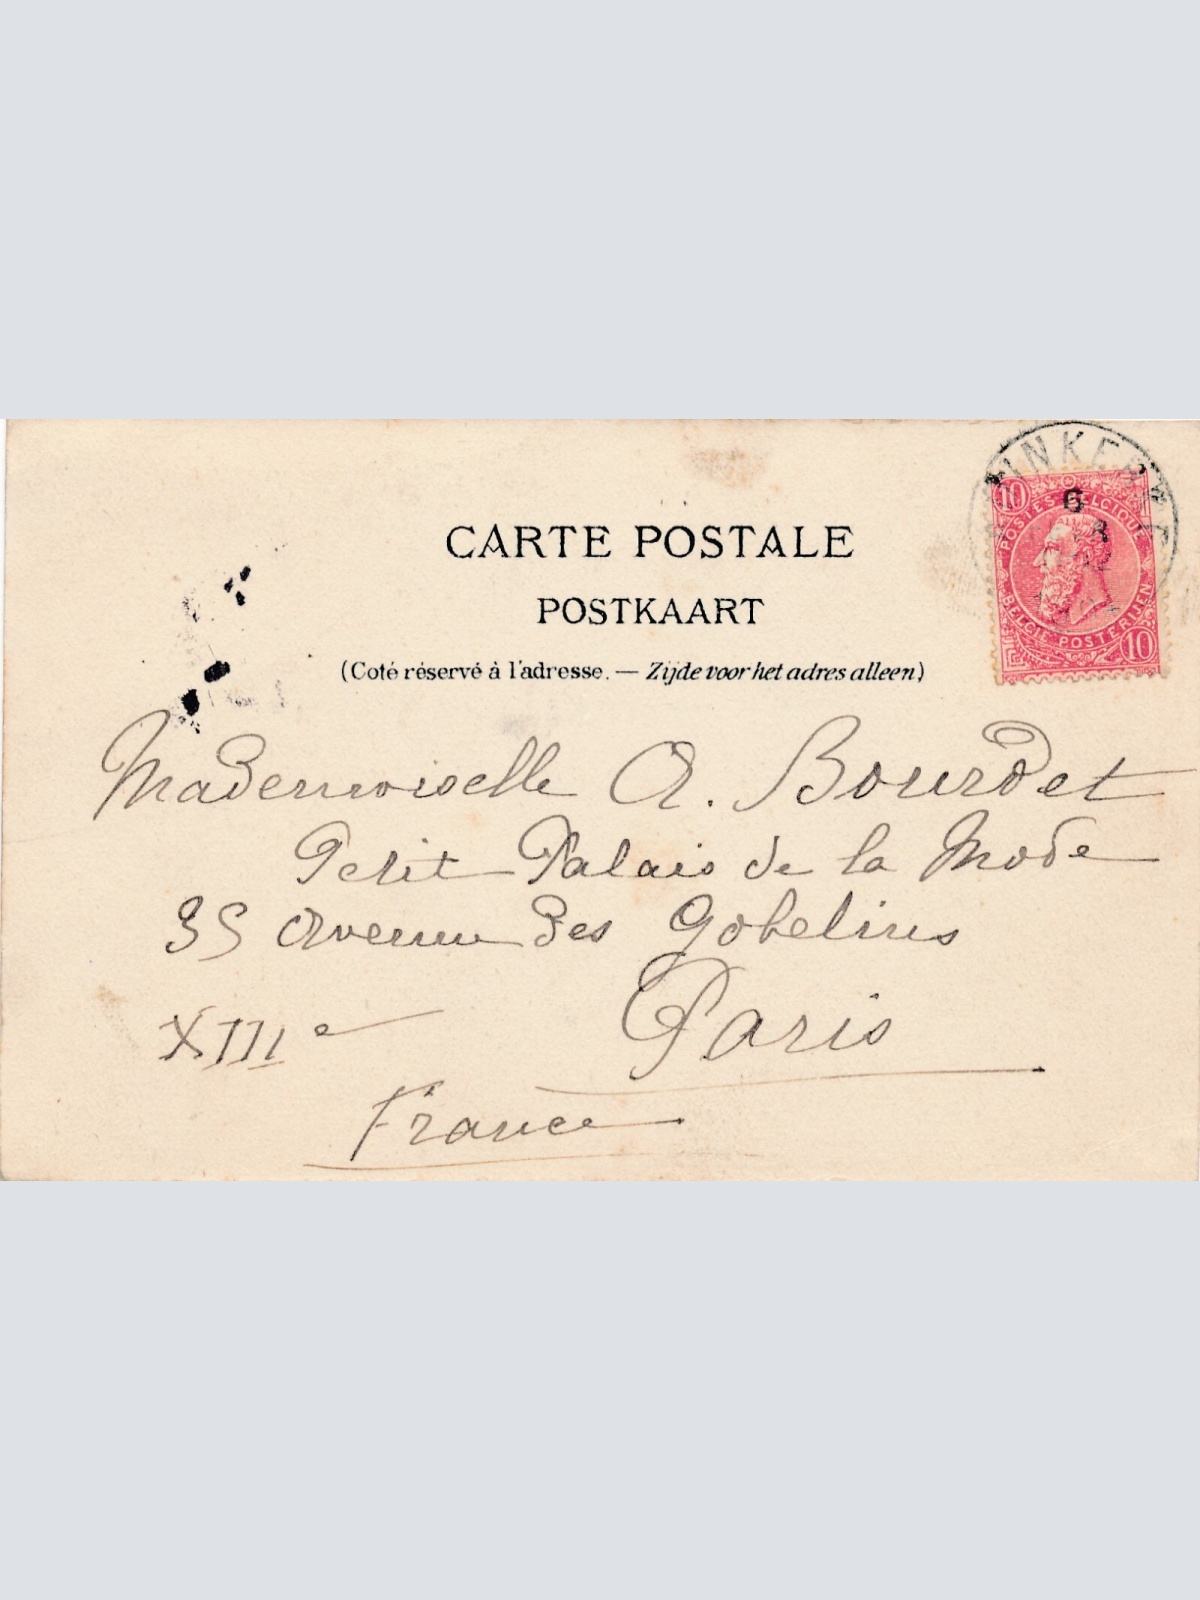 CARTE POSTALE
POSTKAART
(Coté réservé à l'adresse. — Zijde voor het adres alleen)
10
POSTES BELGIQUE
BELGIE POSTERIJEN
10
6
Mademoiselle A. Bourdet
Petit Palais de la Mode
35 Avenue des Gobelins
XIIIe Paris
France